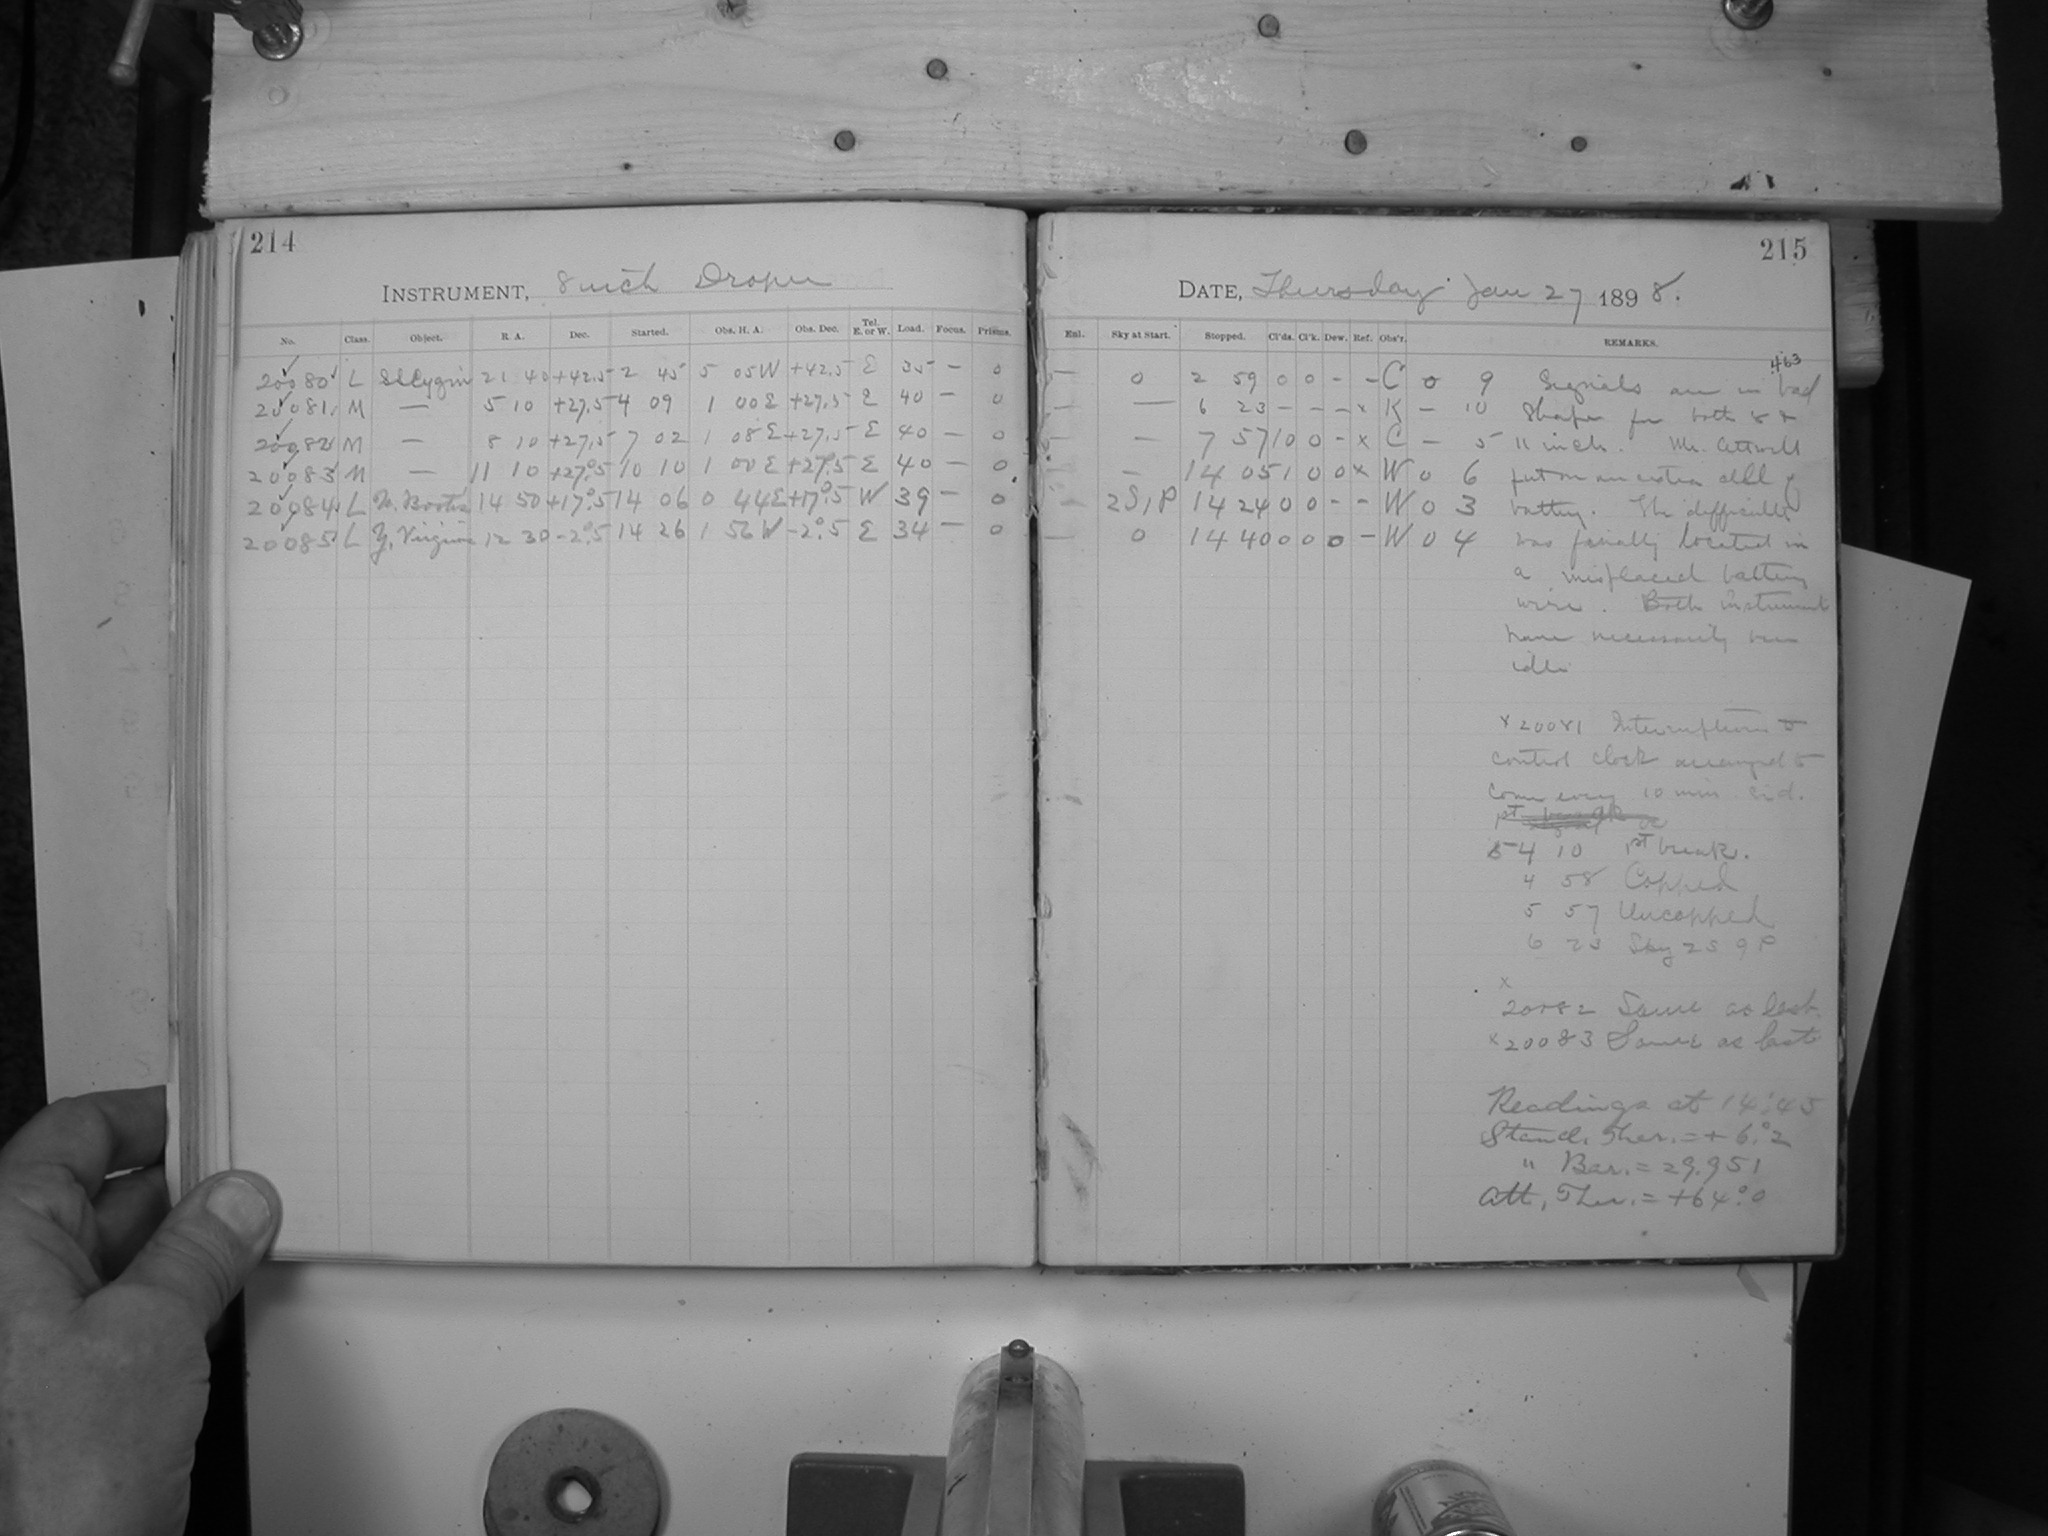 214
INSTRUMENT, 8 inch Draper
No. Class. Object. R. A. Dec. Started. Obs. H. A. Obs. Dec. Tel. E. or W. Load. Focus. Prisms.
20080 L SS Cygni 21 40 +42.5 2 45 5 05 W +42.5 E 35 — 0
20081 M — 5 10 +27.5 4 09 1 00 E +27.5 E 40 — 0
20082 M — 8 10 +27.5 7 02 1 08 E +27.5 E 40 — 0
20083 M — 11 10 +27°.5 10 10 1 00 E +27°.5 E 40 — 0
20084 L Bootis 14 50 +17°.5 14 06 0 44 E +17°.5 W 39 — 0
20085 L Virginis 12 30 -2°.5 14 26 1 56 W -2°.5 E 34 — 0
215
DATE, Thursday Jan 27 1898.
Enl. Sky at Start. Stopped. Cl'ds. Cl'k. Dew. Ref. Obs'r. REMARKS.
463
— 0 2 59 0 0 - - C 0 9 Signals are in bad
— — 6 23 - - - x K — 10 shape for both 8 &
— — 7 57 10 0 - x C — 5 11 inch. Mr. Attwill
— 14 05 1 0 0 x W 0 6 put on an extra cell of
— 2S,1P 14 24 0 0 - - W 0 3 battery. The difficulty
— 0 14 40 0 0 0 - W 0 4 was finally located in
a misplaced battery
wire. Both instrument
have necessarily been
idle
x 20081 Interruptions to
control clock arranged to
come every 10 min sid.
1st break
4 10 1st break.
4 58 Capped
5 57 Uncapped
6 23 Sky 2S 9P
x
20082 Same as last.
x 20083 Same as last
Readings at 14:45
Stand. Ther. = + 6.°2
" Bar. = 29.951
Att. Ther. = +64.°0